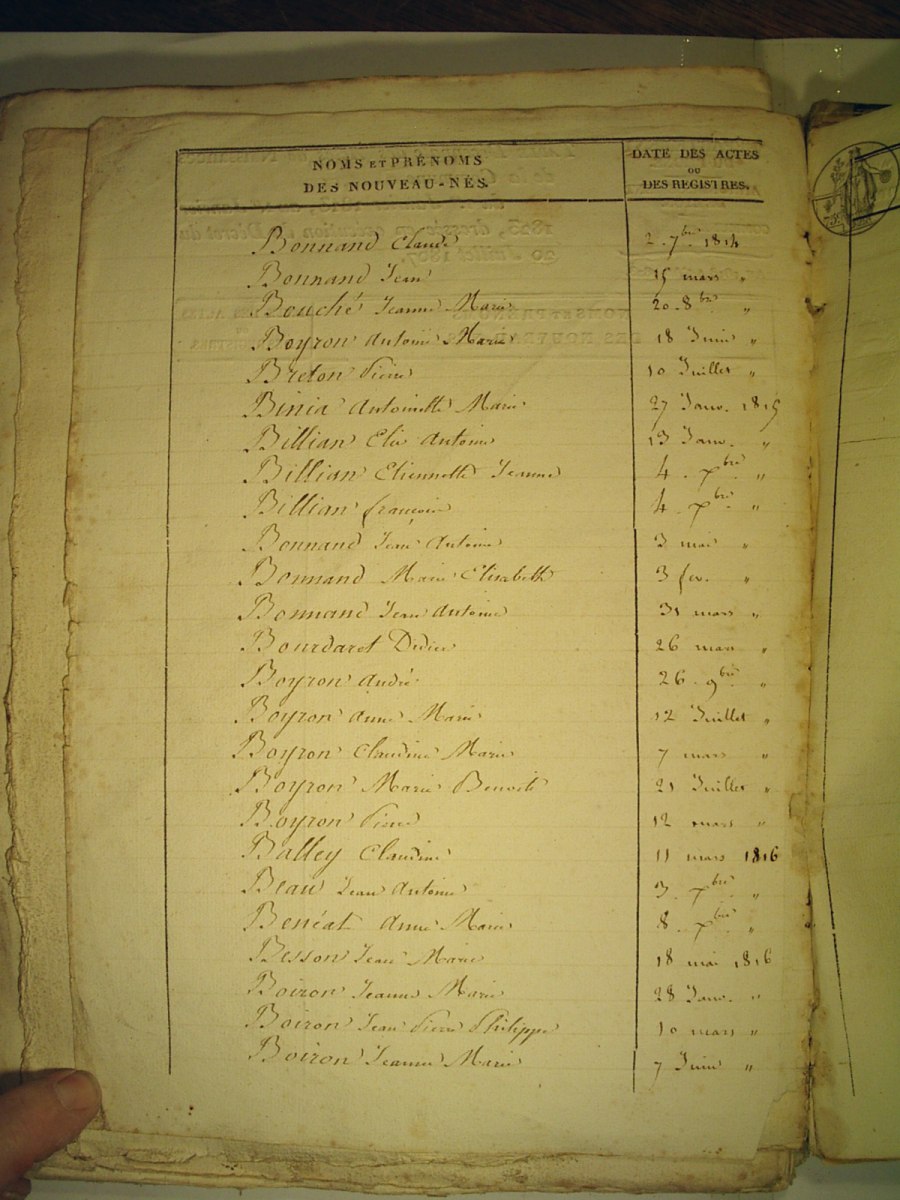 NOMS ET PRÉNOMS
DES NOUVEAU-NÉS.
DATE DES ACTES
OU
DES REGISTRES.
Bonnand Claude 2. 7bre 1814
Bonnand Jean 15 mars "
Bouché Jeanne Marie 20. 8bre "
Boyron Antoine Marie 18 Juin "
Breton Pierre 10 Juillet "
Binia Antoinette Marie 27 Janv. 1815
Billian Elie Antoine 13 Janv. "
Billian Etiennette Jeanne 4. Xbre "
Billian françois 4. Xbre "
Bonnand Jean Antoine 3 mai "
Bonnand Marie Elisabeth 3 fev. "
Bonnand Jean Antoine 31 mars "
Bourdaret Didier 26 mars "
Boyron André 26. 9bre "
Boyron Anne Marie 12 Juillet "
Boyron Claudine Marie 7 mars "
Boyron Marie Benoite 21 Juillet "
Boyron Pierre 12 mars "
Balley Claudine 11 mars 1816
Beau Jean Antoine 3. 7bre "
Benéat Anne Marie 8. Xbre "
Besson Jean Marie 18 mai 1816
Boiron Jeanne Marie 28 Janv. "
Boiron Jean Pierre Philippe 10 mars "
Boiron Jeanne Marie 7 Juin "